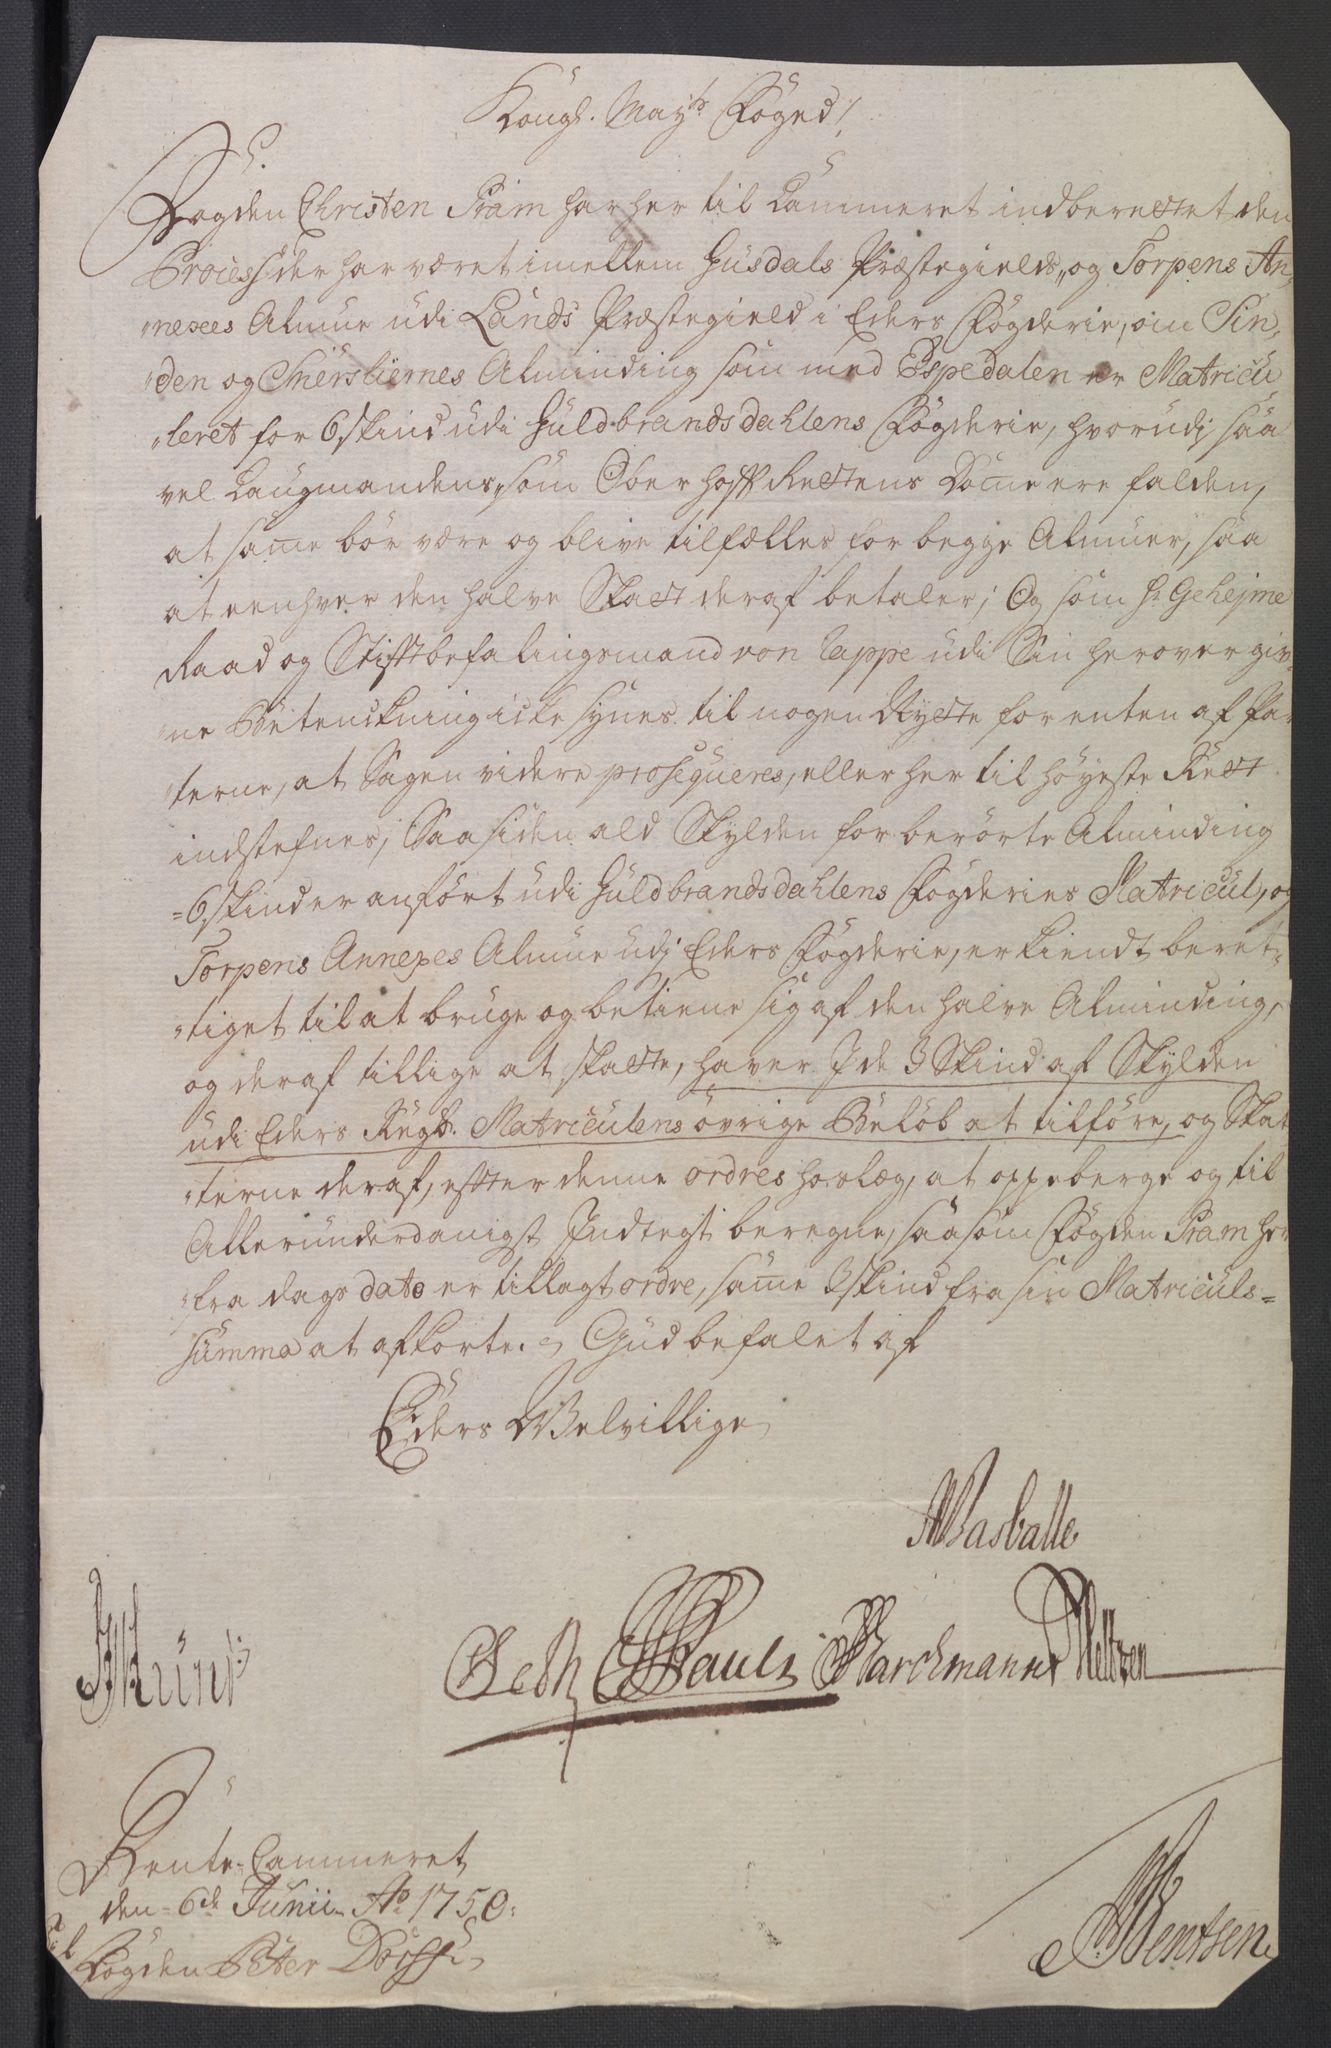 Kongl. Mayts Foged!
Fogden Christen Pram har her til Cammeret indberettet den
Process der har været imellem Gusdals Præstegields, og Torpens An„
„nexes Almue udi Lands Præstegield i Eders Fogderie, om Sin„
„den og Smérsliernes Alminding som med Espedalen er Matricu
„leret for 6 skind udi Guldbrandsdahlens Fogderie, hvorudj saa
vel Laugmandens, som Ober hoff Rettens Domme ere falden,
at samme bör være og blive tilfælles for begge Almuer, saa
at eenhver den halve Skatt deraf betaler; Og som Hr Gehejme
Raad og Stifftbefalingsmand von Rappe udi Sin herover giv„
„ne Betenckning icke synes til nogen Nytte for enten af Par
„terne, at Sagen videre prosequeres, eller her til höyeste Rett
indstefnes; Saa siden ald Skylden for berörte Alminding
=6 skind er anfört udi Guldbrandsdahlens Fogderies Matricul, og
Torpens Annexes Almue udj Eders Fogderie, er kiendt beret„
„tiget til at bruge og betiene sig af den halve Alminding,
og deraf tillige at skatte, haver I de 3 Skind af Skylden
udi Eders Regsk. Matriculens övrige Belöb at tilföre, og Skat
„terne deraf, efter denne ordres hoslæg, at oppeberge og til
Allerunderdanigst Indtegt beregne, saasom Fogden Pram her
„fra dags dato er tillagt ordre, samme 3 skind fra sin Matriculs=
summa at afkorte. Gud befalet af
Eders Velvillige
Masballe
Pauli Barchmann Neltzen
Rente-Cammeret
den 6de Junii Ao 1750.
Bentsen
Fogden Peter